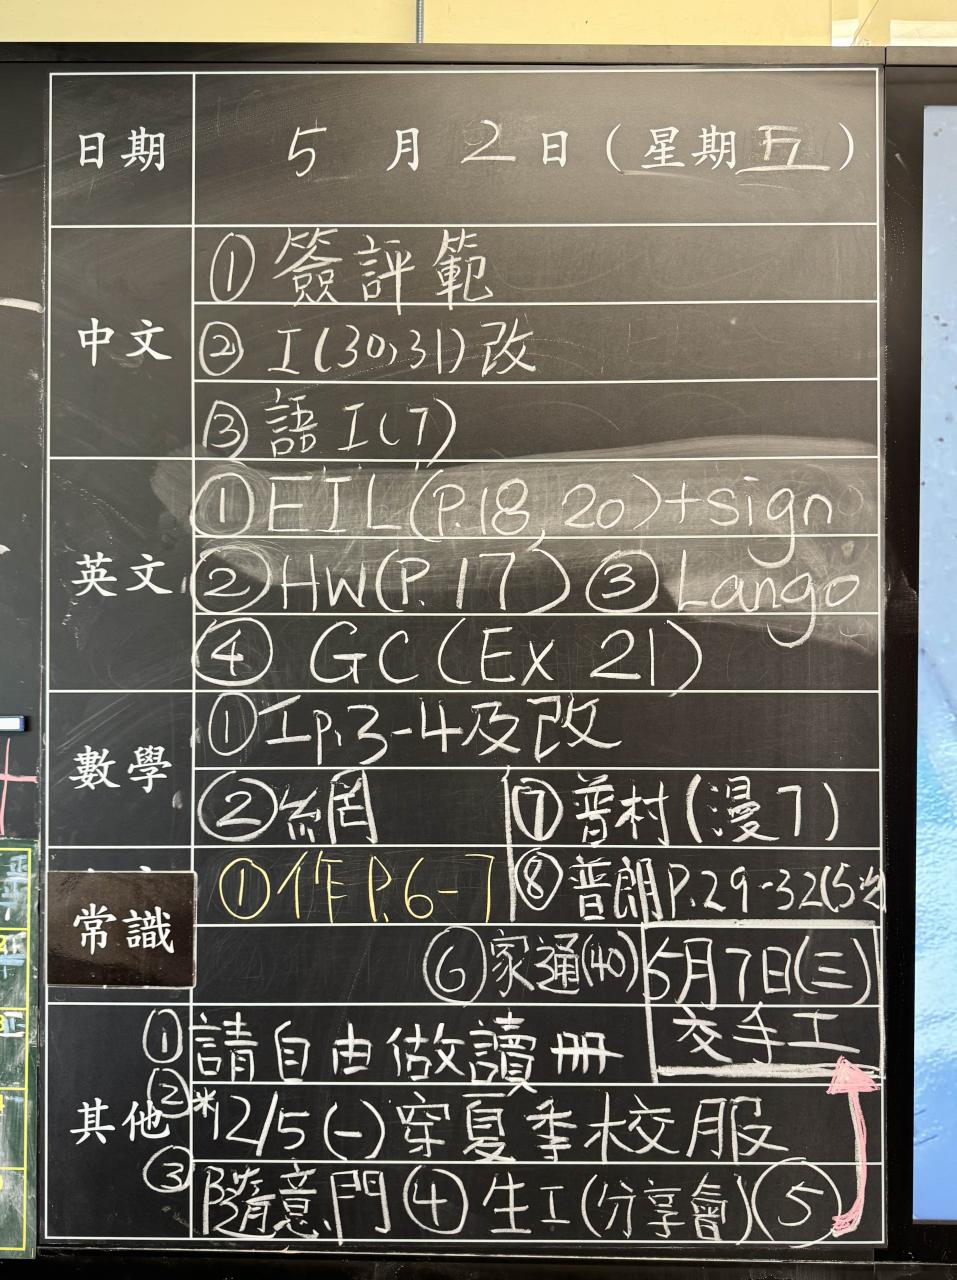 日期 5月2日(星期五)
中文
①簽評範
②I(30,31)改
③語I(7)
英文
①EIL(P.18,20)+sign
②HW(P.17) ③Lango
④GC(Ex 21)
數學
①Ip.3-4及改
②網
⑦普村(漫7)
常識
①作P.6-7
⑧普朗P.29-32(5次)
⑥家通(40)
5月7日(三)
交手工
其他
①請自由做讀冊
②*12/5(一)穿夏季校服
③隨意門 ④生I(分享會) ⑤